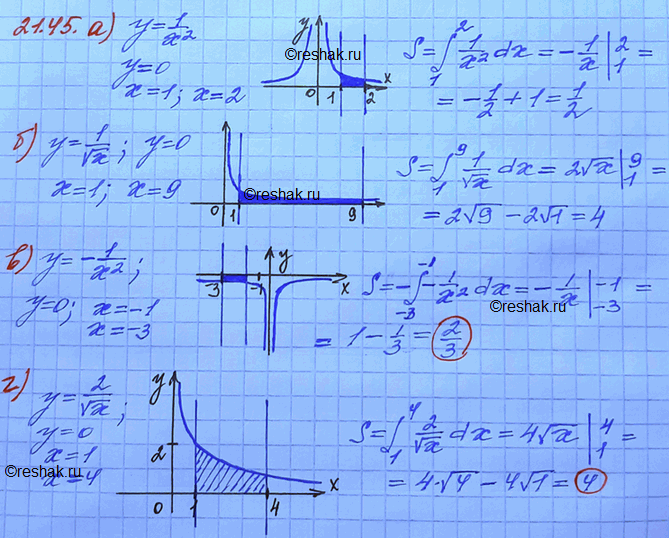 21.45. а) y = 1/x²
y = 0
x = 1; x = 2
y
x
0 1 2
S = ∫₁² 1/x² dx = -1/x |₁² =
= -1/2 + 1 = 1/2
©reshak.ru
б) y = 1/√x; y = 0
x = 1; x = 9
0 1 9
©reshak.ru
S = ∫₁⁹ 1/√x dx = 2√x |₁⁹ =
= 2√9 - 2√1 = 4
в) y = -1/x²;
y = 0; x = -1
x = -3
y
-3 -1 x
S = -∫₋₃⁻¹ -1/x² dx = -1/x |₋₃⁻¹ =
©reshak.ru
= 1 - 1/3 = 2/3
г) y = 2/√x;
y = 0
x = 1
x = 4
©reshak.ru
y
2
x
0 1 4
S = ∫₁⁴ 2/√x dx = 4√x |₁⁴ =
= 4·√4 - 4√1 = 4
©reshak.ru